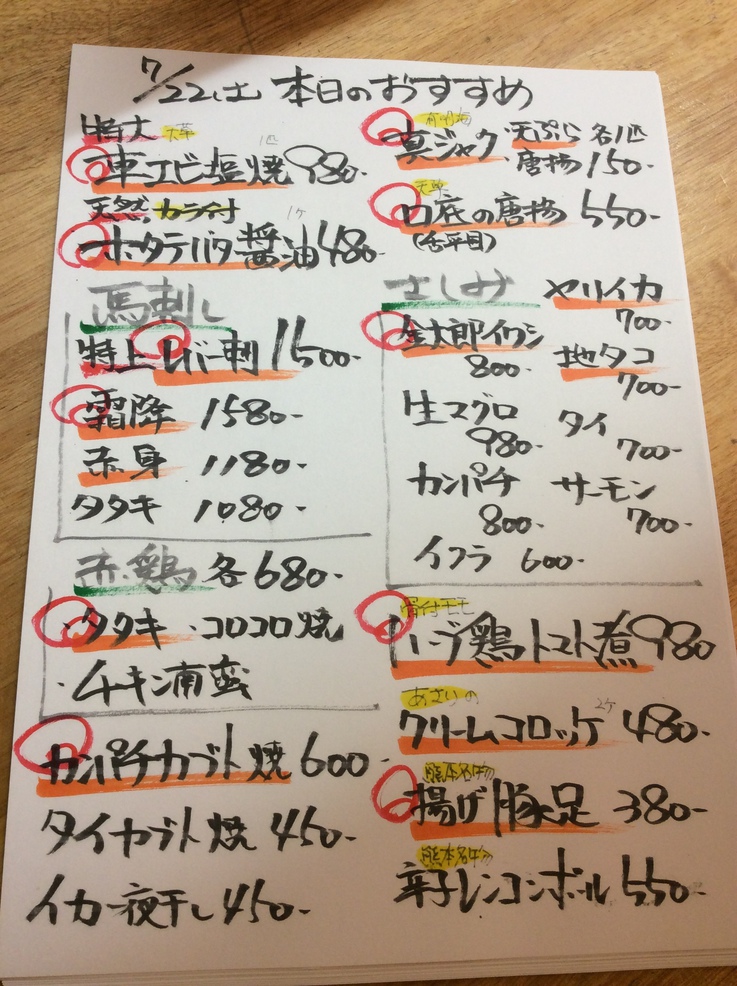 7/22(土) 本日のおすすめ
特大 天草
車エビ塩焼 1匹 980-
天然 カラ付
ホタテバター醤油 1ケ 480-
馬刺し
特上レバー刺 1500-
霜降 1580-
赤身 1180-
タタキ 1080-
赤鶏 各680-
・タタキ ・コロコロ焼
・チキン南蛮
カンパチカブト焼 600-
タイカブト焼 450-
イカ一夜干し 450-
有明海
真ジャク ・天ぷら 各1匹
・唐揚 150-
天草
口底の唐揚 550-
(舌平目)
さしみ
金太郎イワシ
800-
生マグロ
980-
カンパチ
800-
イクラ 600-
ヤリイカ
700-
地タコ
700-
タイ
700-
サーモン
700-
骨付モモ
ハーブ鶏トマト煮 980
あさりの
クリームコロッケ 2ケ 480-
熊本名物
揚げ豚足 380-
熊本名物
辛子レンコンボール 550-